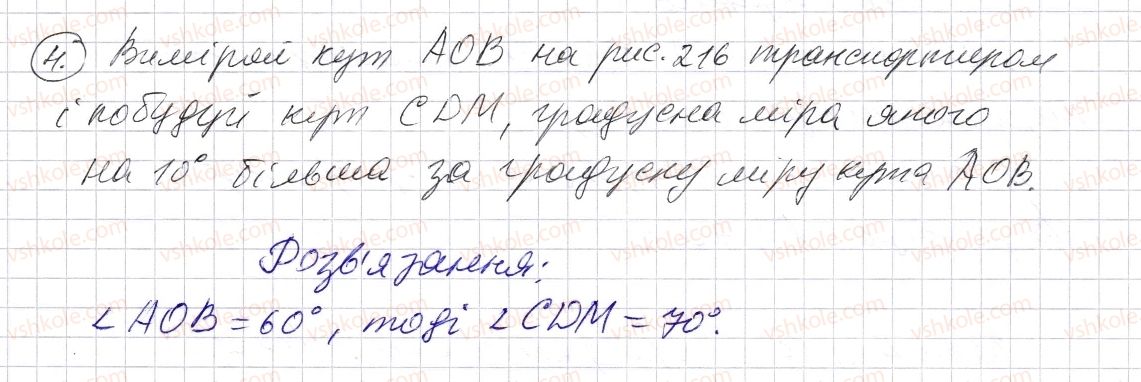 4. Виміряй кут AOB на рис. 216 транспортиром
і побудуй кут CDM, градусна міра якого
на 10° більша за градусну міру кута AOB.
Розв'язання:
∠AOB = 60°, тоді ∠CDM = 70°.